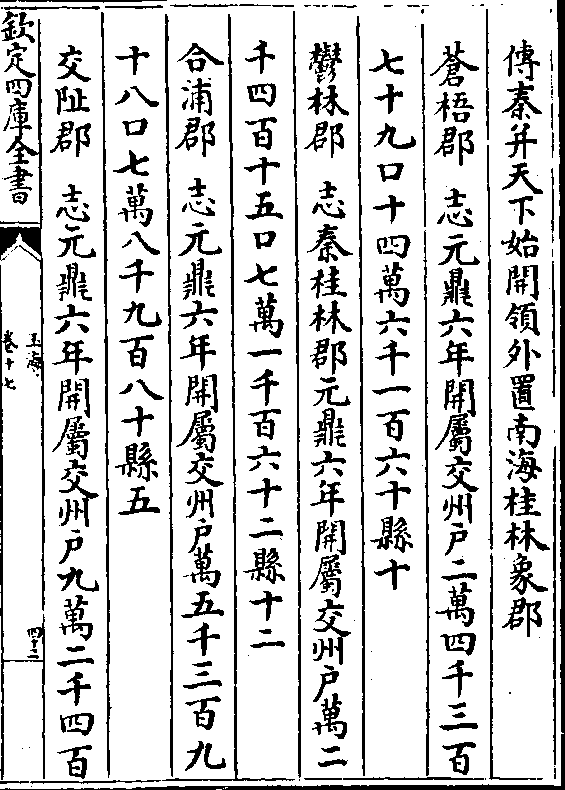 傳秦并天下始開領外置南海桂林象郡
蒼梧郡　志元鼎六年開屬交州户二萬四千三百
七十九口十四萬六千一百六十縣十
鬱林郡　志秦桂林郡元鼎六年開屬交州户萬二
千四百十五口七萬一千百六十二縣十二
合浦郡　志元鼎六年開屬交州户萬五千三百九
十八口七萬八千九百八十縣五
交阯郡　志元鼎六年開屬交州户九萬二千四百
欽定四庫全書
玉海
卷十七
四十二